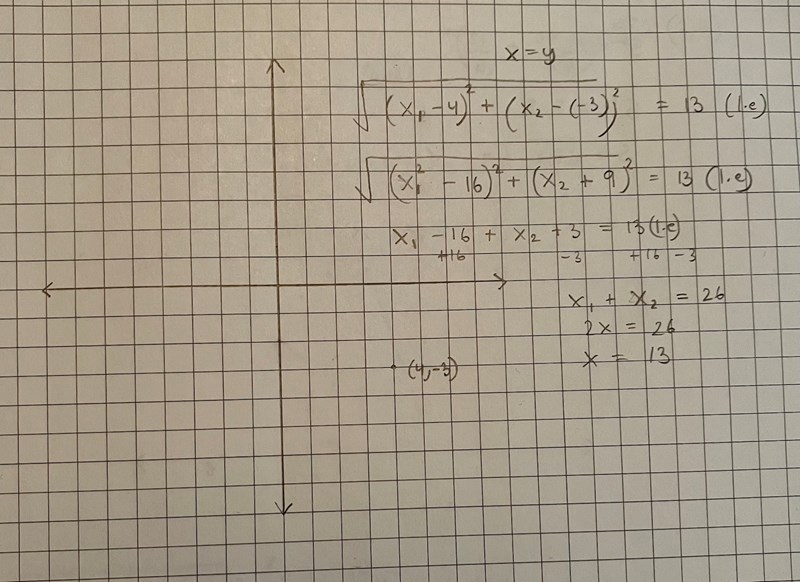 x = y
√((x₁ - 4)² + (x₂ - (-3))²) = 13 (l.e)
√((x₁² - 16)² + (x₂ + 9)² = 13 (l.e)
x₁ - 16 + x₂ + 3 = 13 (l.e)
+16 -3 +16 -3
x₁ + x₂ = 26
2x = 26
x = 13
(4,-3)